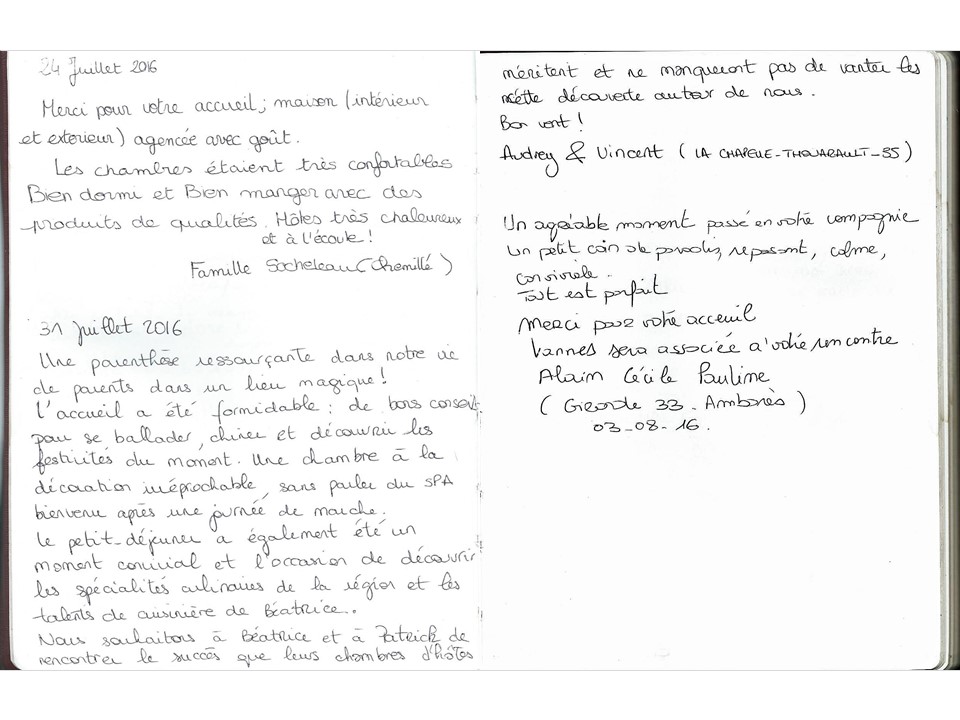 24 Juillet 2016
Merci pour votre accueil; maison (intérieur
et exterieur) agencée avec goût.
Les chambres étaient très confortables
Bien dormi et Bien manger avec des
produits de qualités. Hôtes très chaleureux
et à l'écoute!
Famille Socheleau (Chemillé)
31 Juillet 2016
Une parenthèse ressourçante dans notre vie
de parents dans un lieu magique!
L'accueil a été formidable: de bons conseils
pour se ballader, chiner et découvrir les
festivités du moment. Une chambre à la
décoration irréprochable, sans parler du SPA
bienvenu après une journée de marche.
Le petit-déjeuner a également été un
moment convivial et l'occasion de découvrir
les spécialités culinaires de la région et les
talents de cuisinière de Béatrice..
Nous souhaitons à Béatrice et à Patrick de
rencontrer le succès que leurs chambres d'hôtes
méritent et ne manqueront pas de vanter les
cette découverte autour de nous.
Bon vent!
Audrey & Vincent (LA CHAPELLE-THOUARAULT-35)
Un agréable moment passé en votre compagnie
Un petit coin de paradis, reposant, calme,
conviviale.
Tout est parfait
Merci pour votre acceuil
Vannes sera associée a votre rencontre
Alain Cécile Pauline
(Gironde 33. Ambarès)
03-08-16.